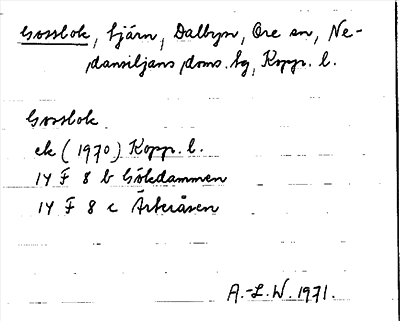 Gossbok, tjärn, Dalbyn, Ore sn, Ne-
dansiljans doms. hg, Kopp. l.
Gossbok
ek (1970) Kopp. l.
14 F 8 b Gökdammen
14 F 8 c Ärteråsen
A.-L. W. 1971.